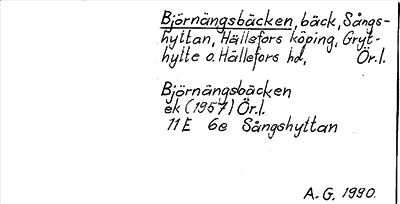 Björnängsbäcken, bäck, Sångs-
hyttan, Hällefors köping, Gryt-
hytte o. Hällefors hd, Ör.l.
Björnängsbäcken
ek (1957) Ör.l.
11E 6e Sångshyttan
A.G. 1990.